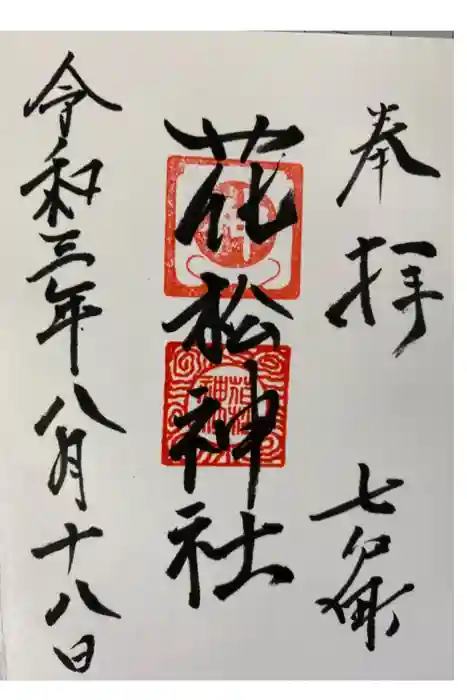 奉拝 七戸
花松神社
令和三年八月十八日